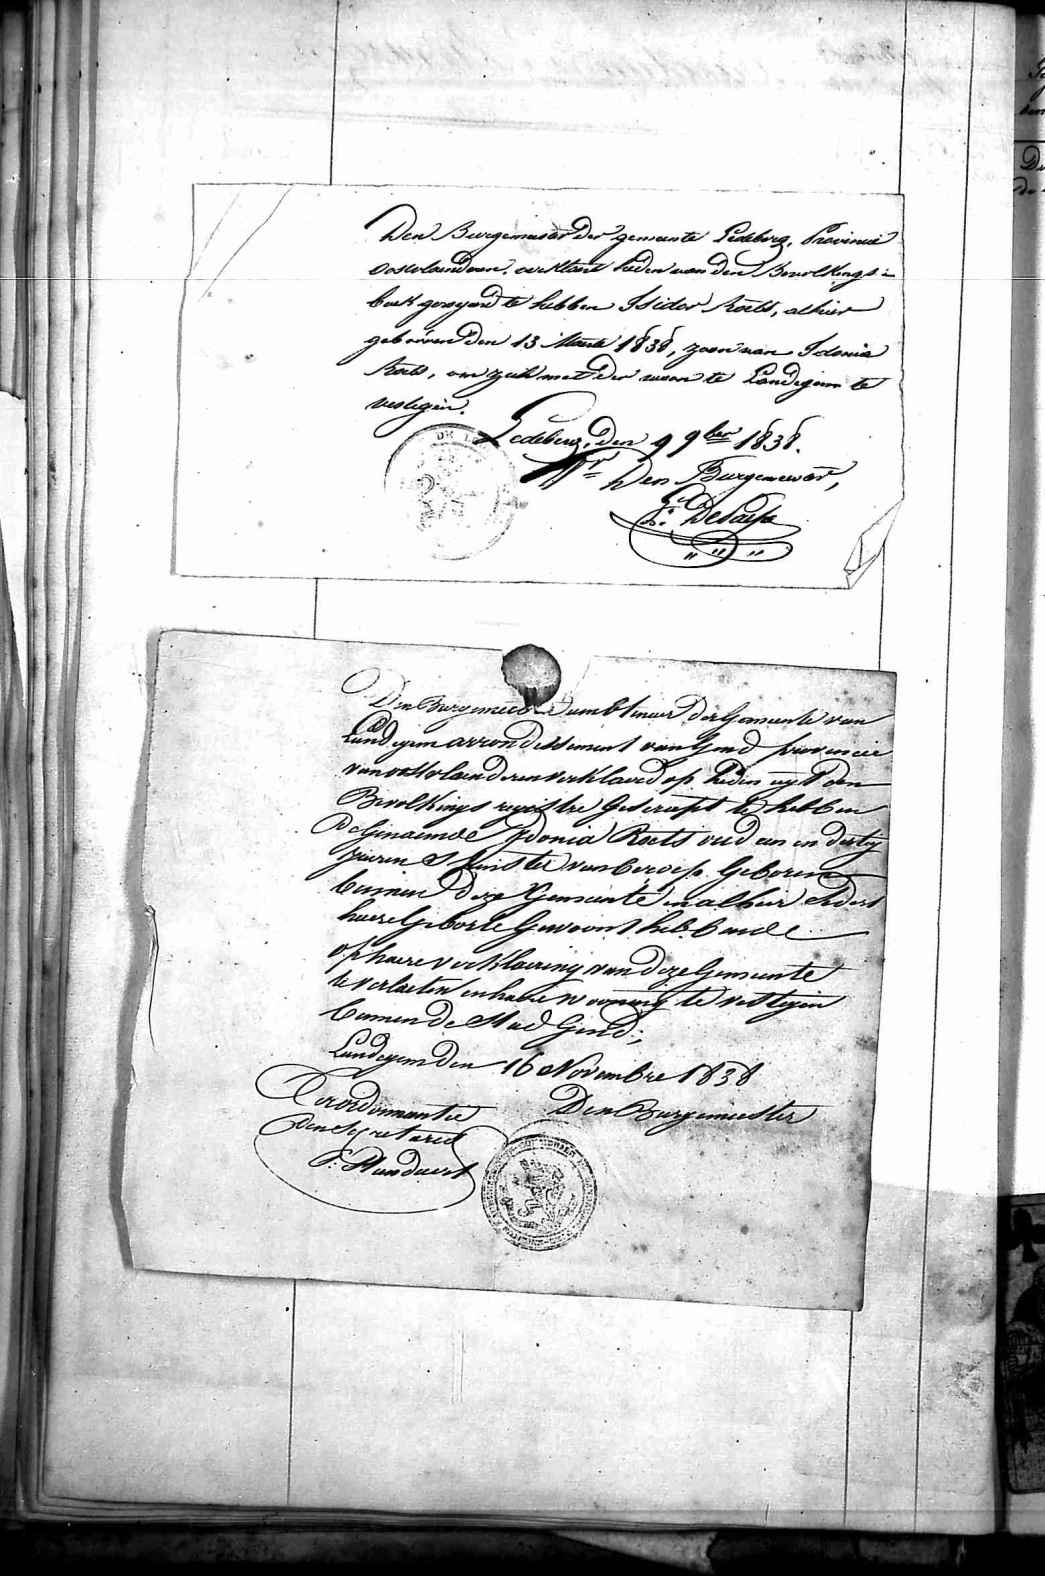 Den Burgemeester der gemeente Ledeberg, Provincie
Oostvlaanderen, verklaert heden van den Bevolkings=
boek gerayeerd te hebben Isidor Roets, alhier
geboren den 13 Maerte 1838, zoon van Idonia
Roets, om zich met der woon te Landegem te
vestigen.
Ledeberg, den 9 9ber 1838.
Den Burgemeester,
Den Burgemeester ambtenaer der Gemeente van
Landegem arrondissement van Gend provincie
van oostvlaenderen verklaerd op heden uyt den
Bevolkings registre geschrapt te hebben
De Genaemde Idonia Roets oud een en dertig
jaeren dienstee van beroep Geboren
binnen deze Gemeente en alhier sedert
haere Geborte Gewoont hebbende
op haere verklaering van deze Gemeente
te verlaeten en haere wooning te vestigen
binnen de Stad Gend;
Landegem den 16 November 1838
Ter ordonnantie Den Burgemeester
Den Secretaris